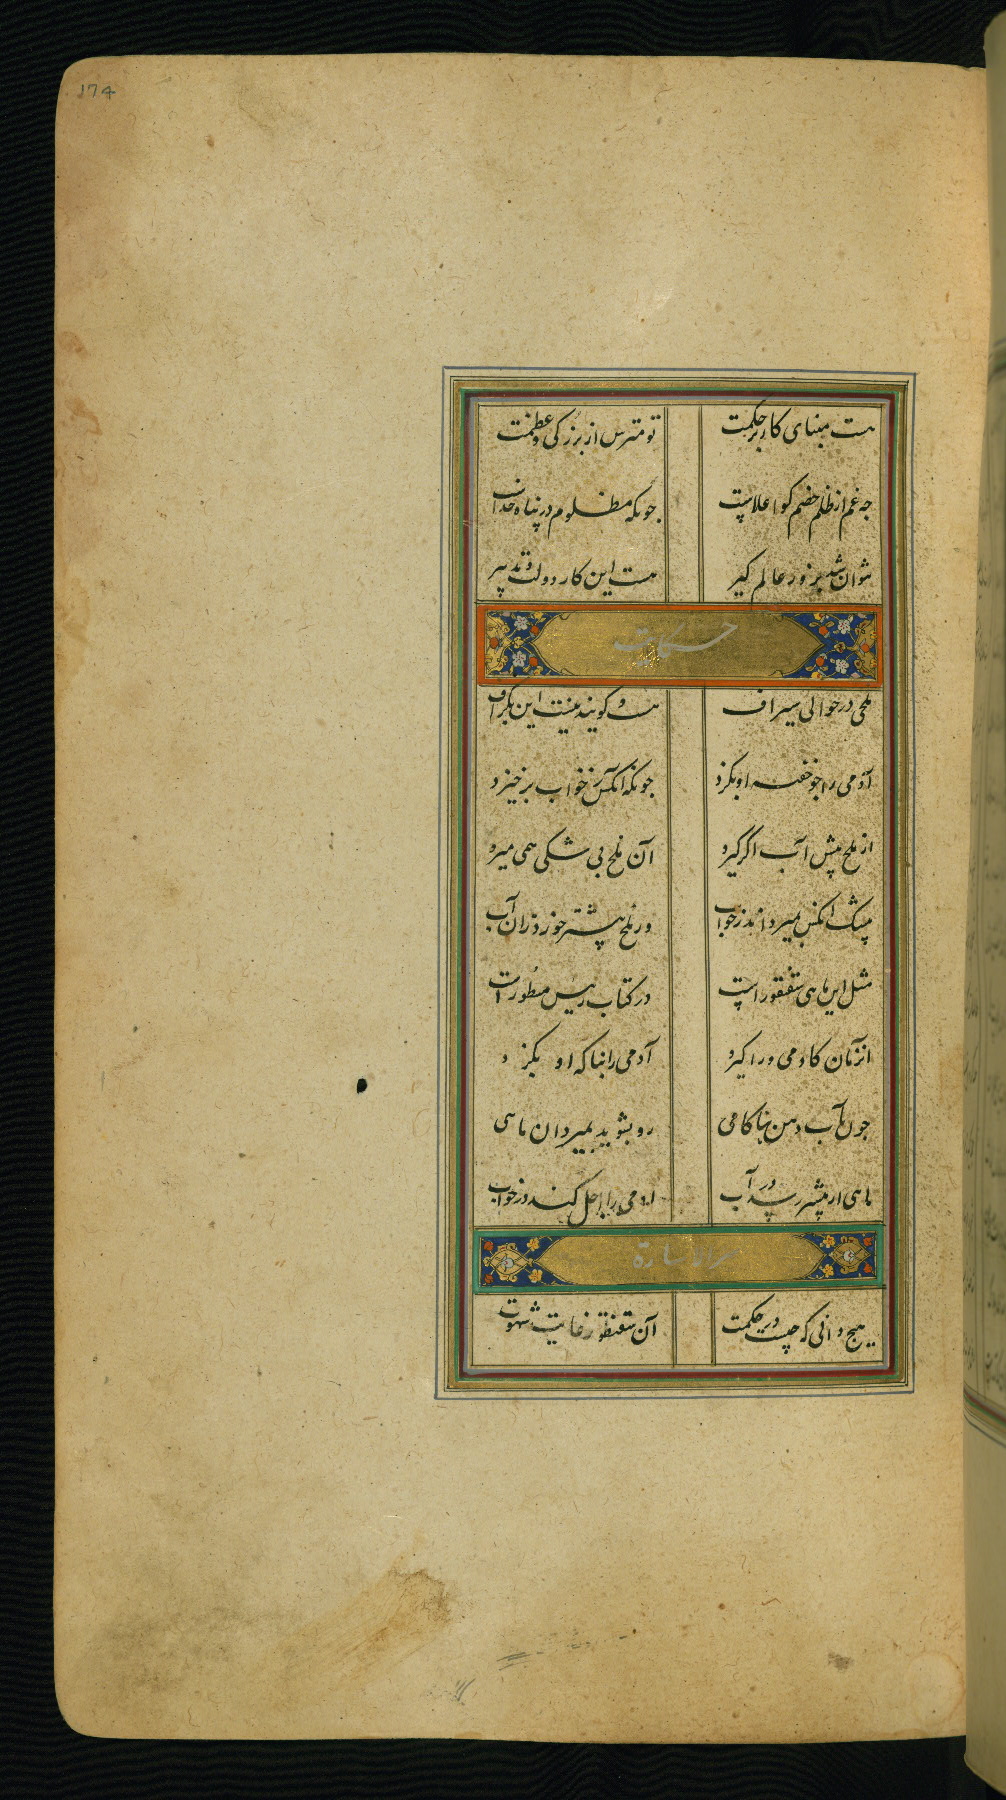 174
هست مبنای کار بر حکمت تو مترس از بزرگی و عظمت
چه غم از ظلم خصم کو اعلاست چونکه مظلوم در پناه خداست
نتوان شد بزور عالم گیر هست این کار دولت و تدبیر
حکایت
ملخی در حوالی سیراف هست و گویند نیست این بگزاف
آدمی را چو خفته او بگزد چونکه آنکس ز خواب برخیزد
از ملخ پیش آب اگر گیرد آن ملخ بی شکی همی میرد
میشک آنکس بمیرد اندر خواب ور ملخ پیشتر خورد زان آب
مثل این ماهی سقنقور است در کتاب رئیس مسطور است
آنزمان کادمی ورا گیرد آدمی را بناگه او بگزد
چون بآب دهن بناکامی رو بشوید بمیرد آن ماهی
ماهی ار پیشتر رسد در آب آدمی را اجل کند در خواب
سر الاشارة
هیچ دانی که چیست در حکمت آن سقنقور غایت شهوت